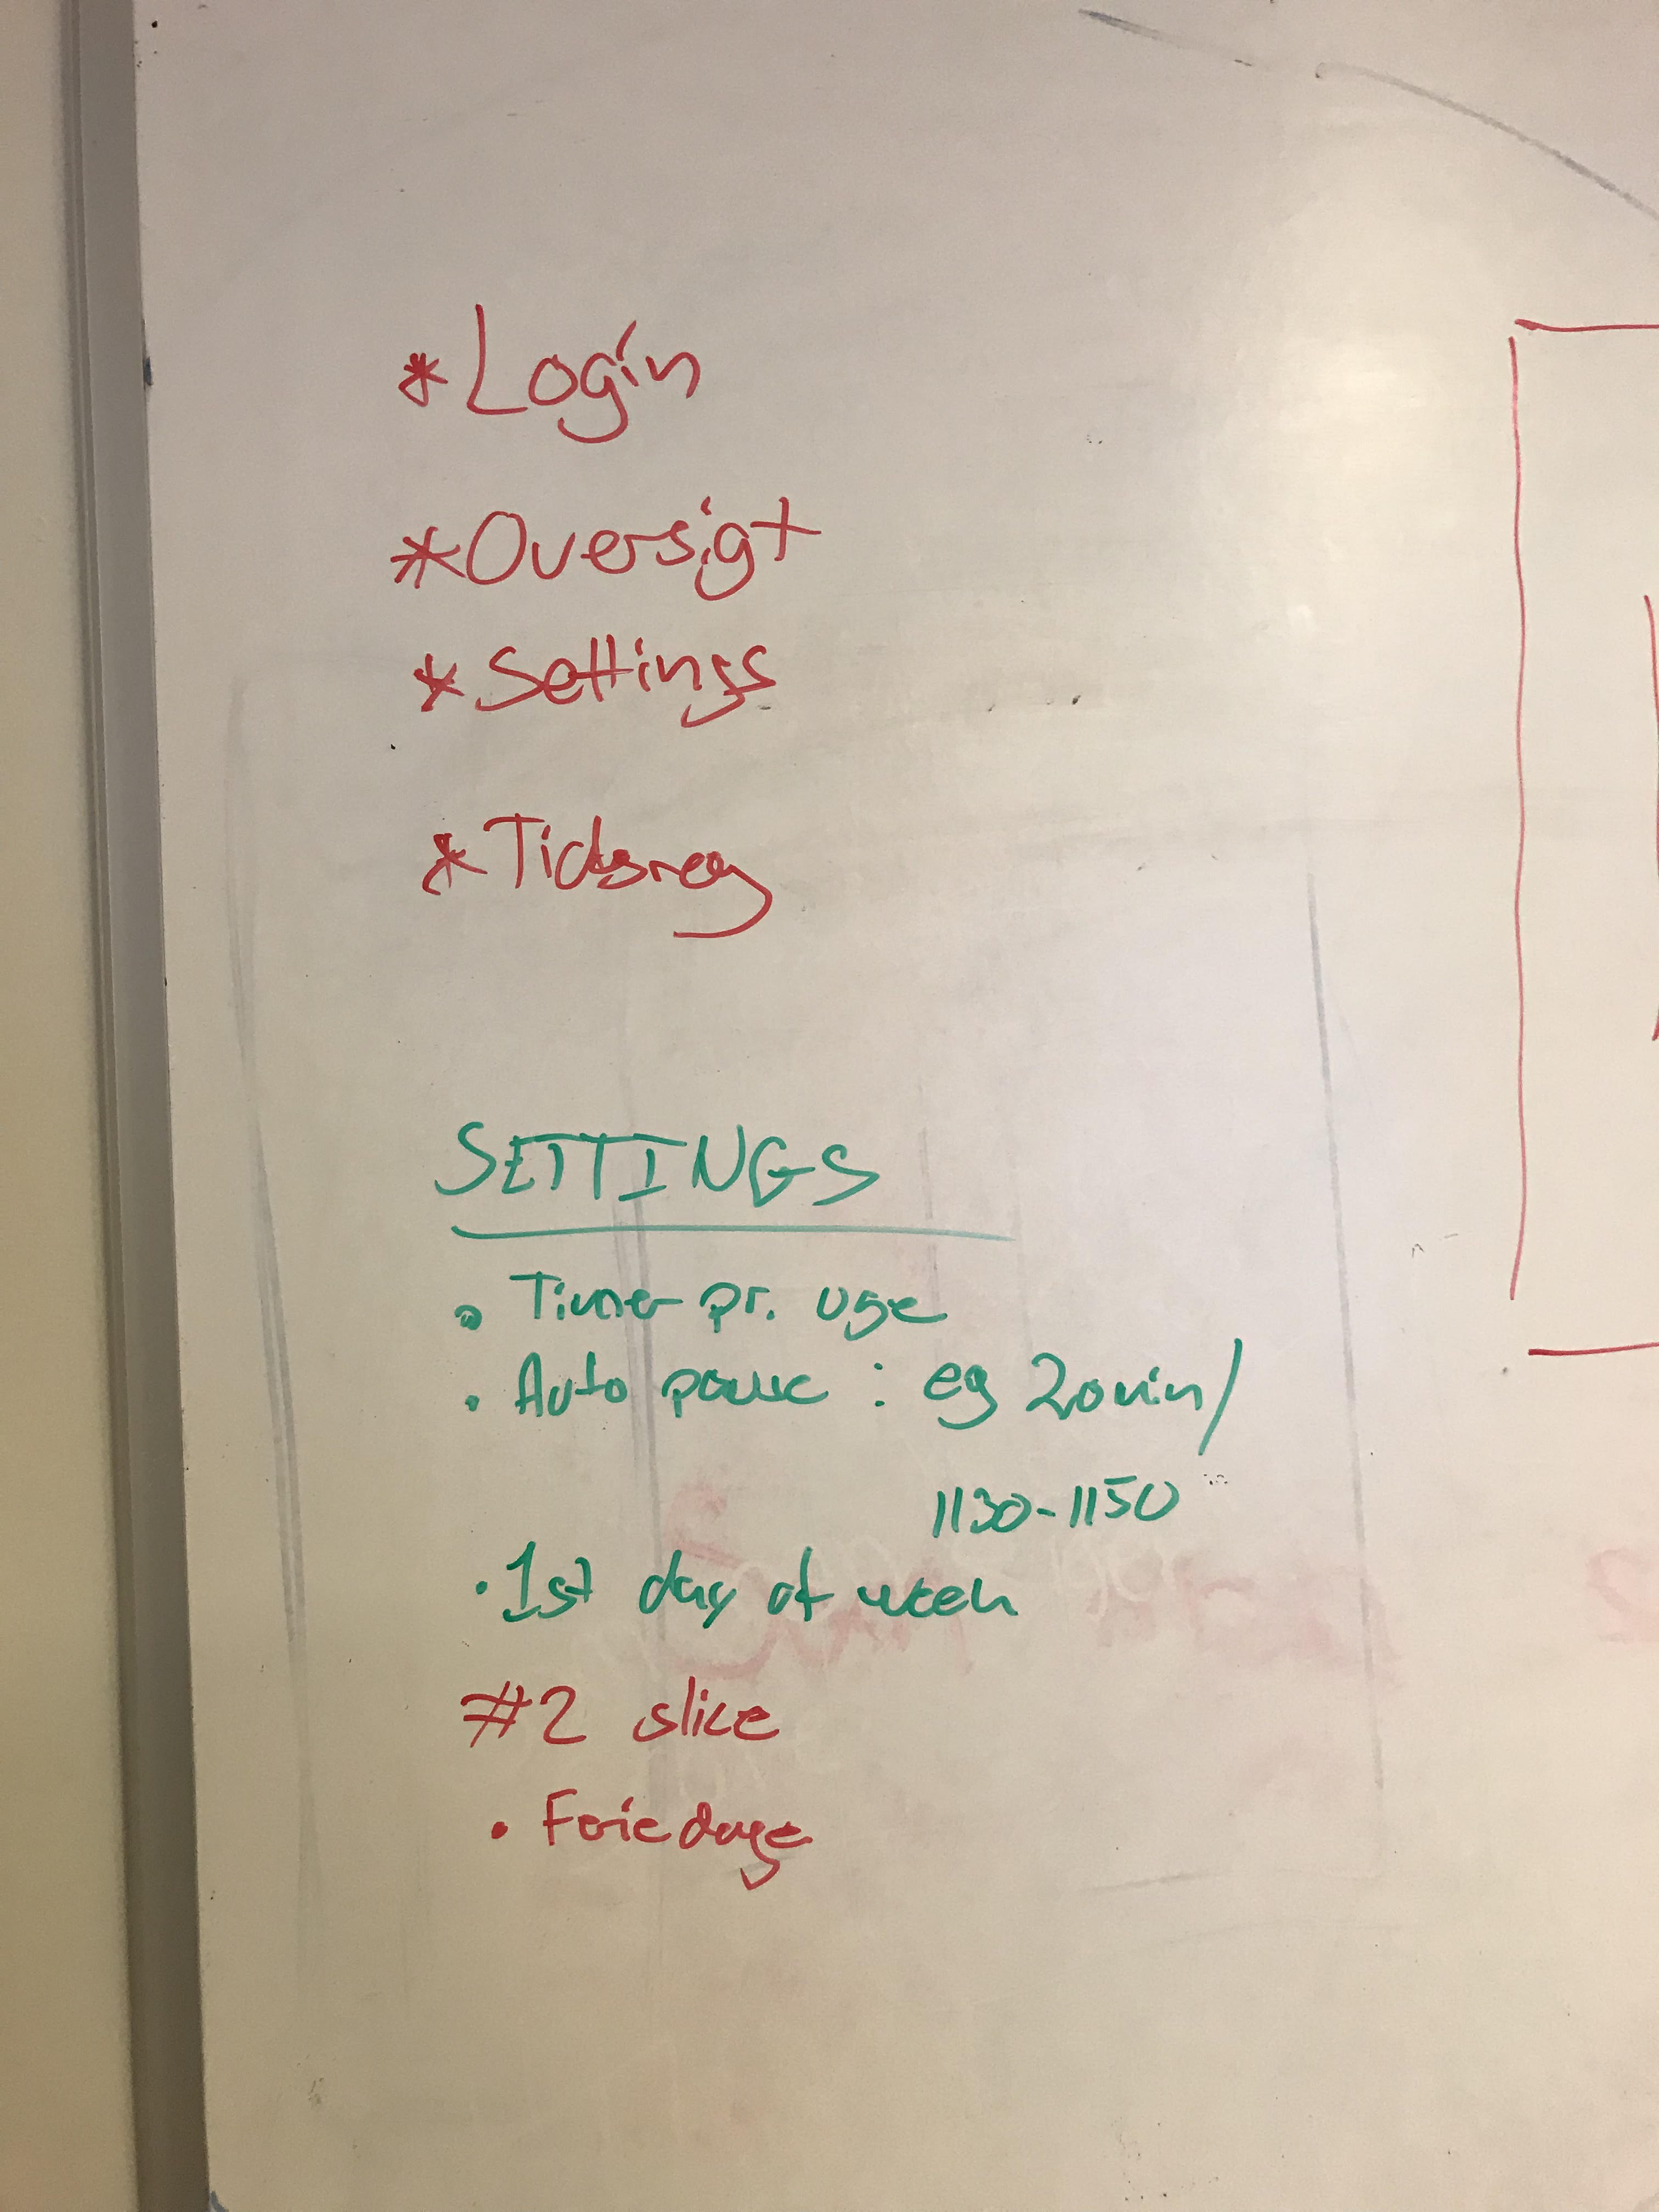 * Login
* Oversigt
* Settings
* Tidsreg
SETTINGS
• Timer pr. uge
• Auto pause : eg 20min/
1130-1150
• 1st day of week
#2 slice
• Feriedage